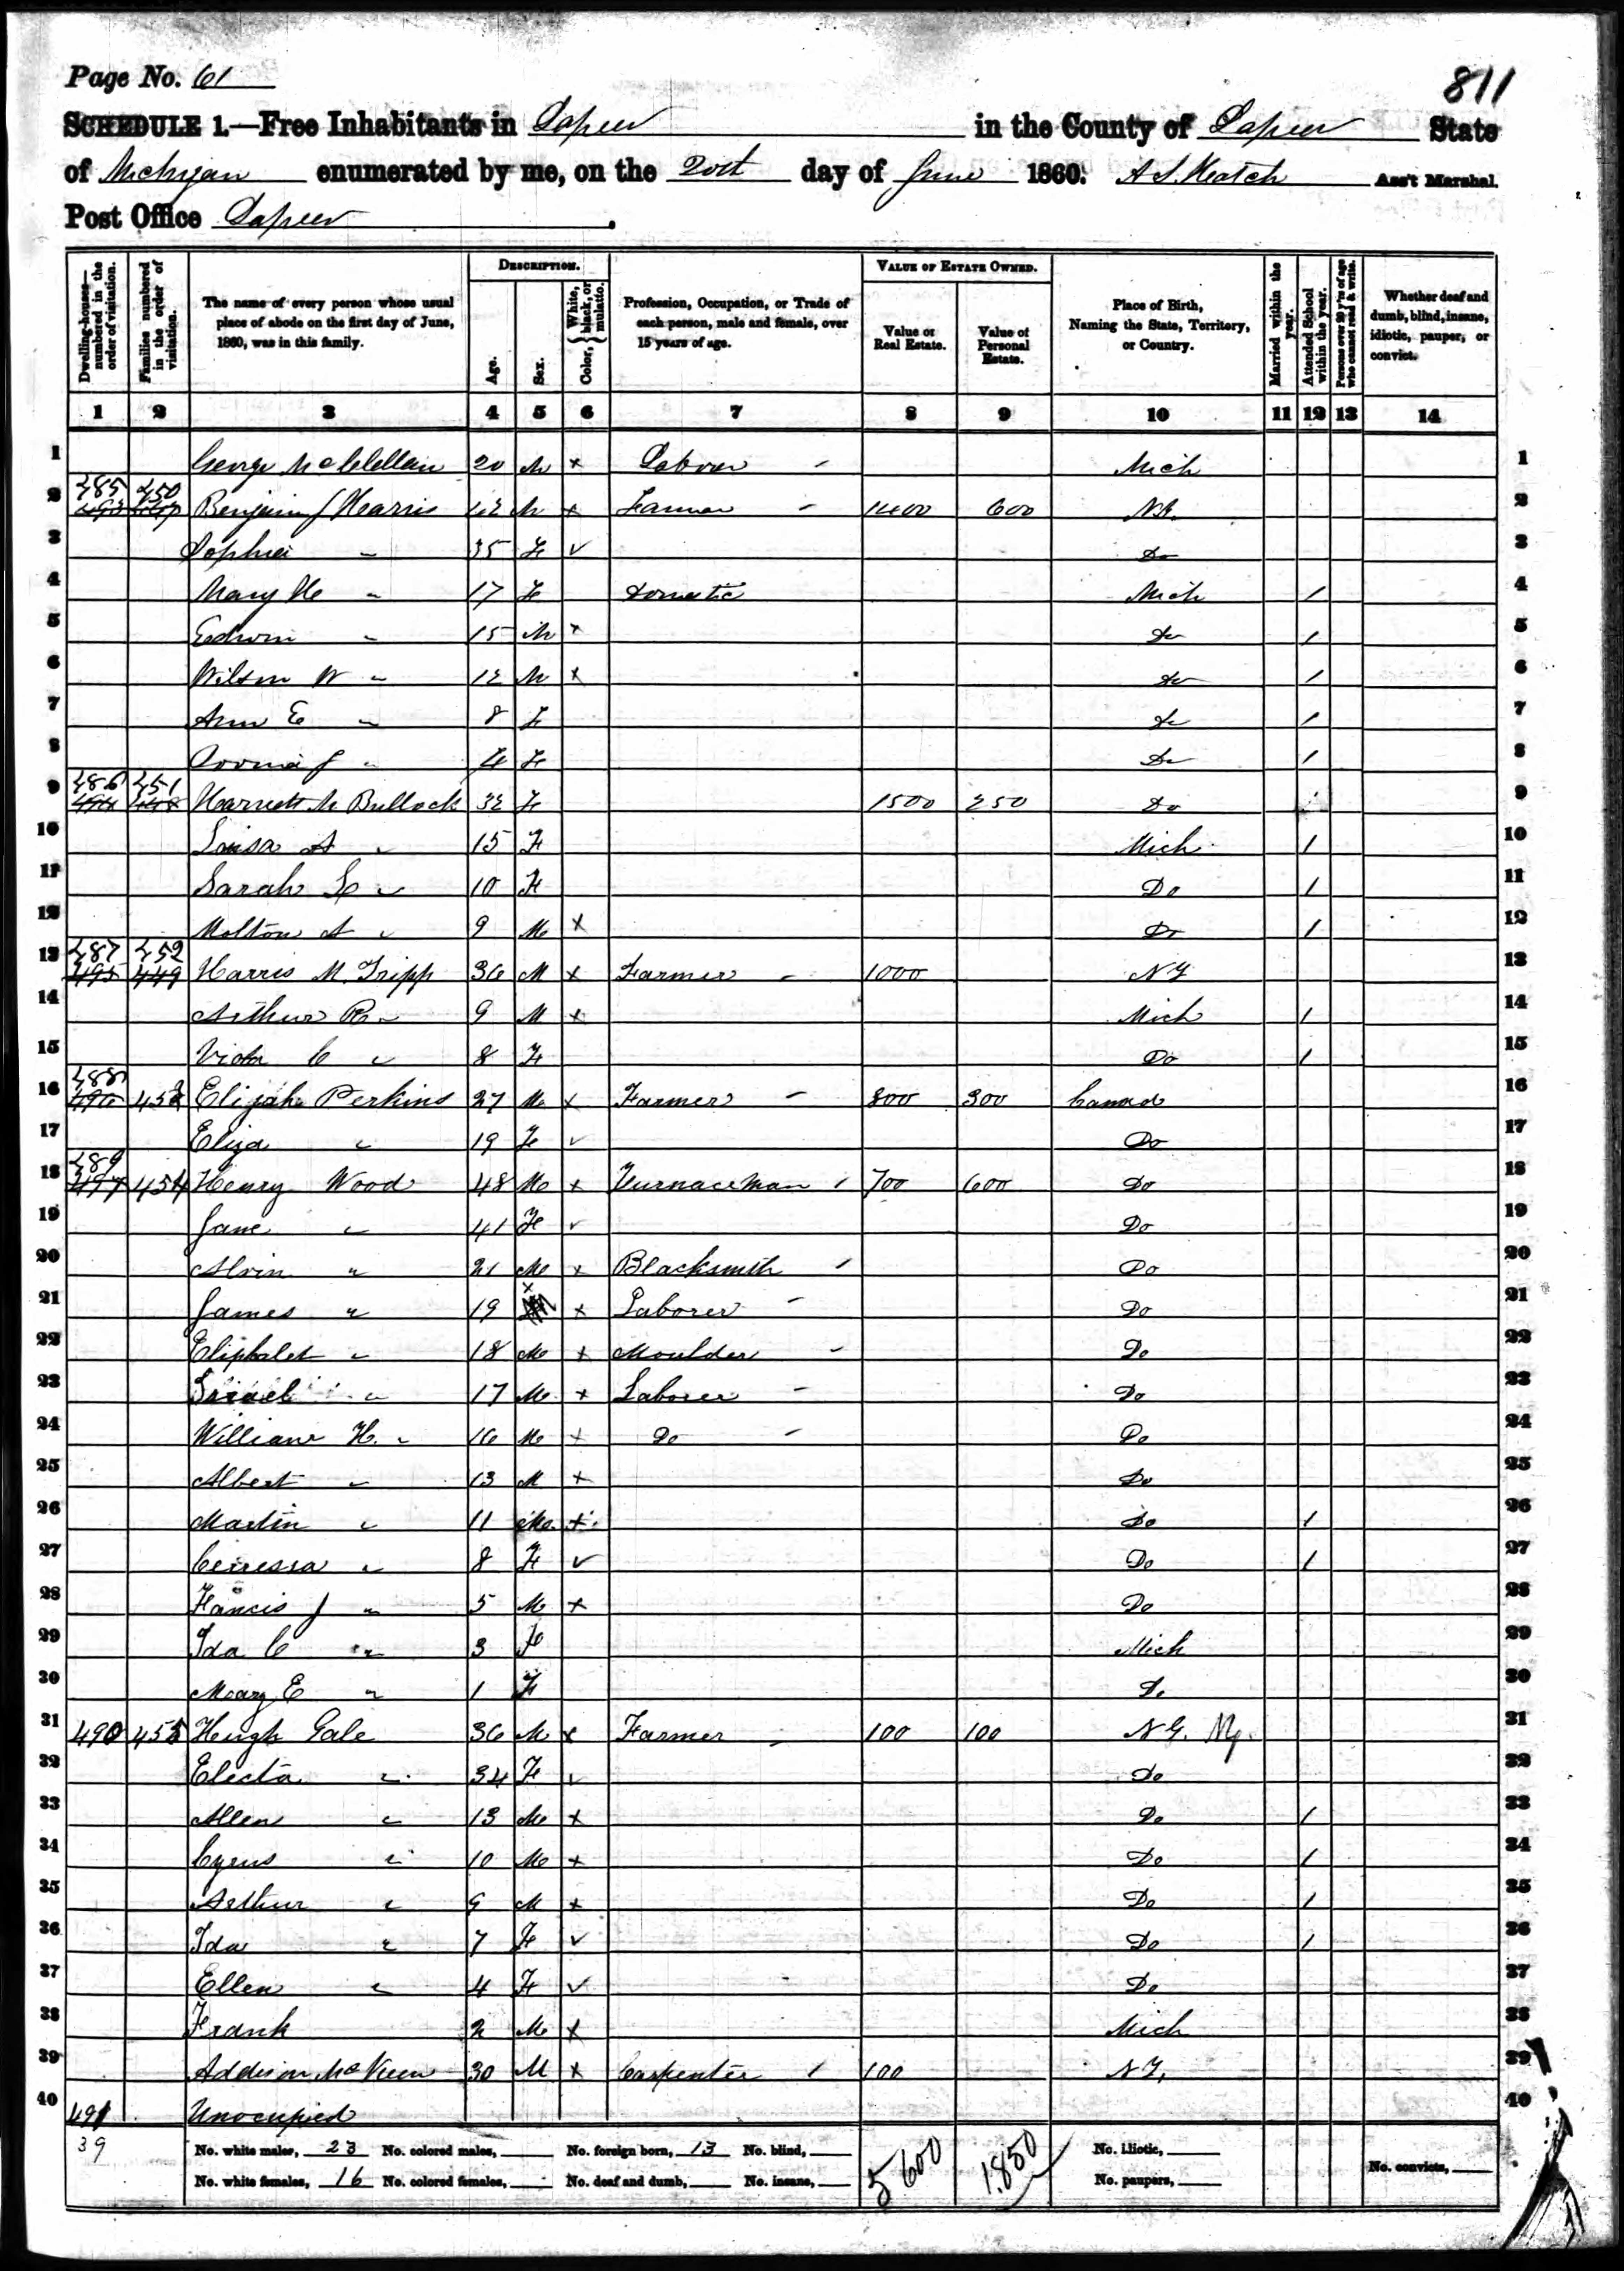 Page No. 61
811
SCHEDULE 1.—Free Inhabitants in Lapeer in the County of Lapeer State
of Michigan enumerated by me, on the 20th day of June 1860. Ass't Marshal.
Post Office Lapeer.
Dwelling-houses—numbered in the order of visitation. Families numbered in the order of visitation. The name of every person whose usual place of abode on the first day of June, 1860, was in this family. DESCRIPTION. Age. Sex. Color, {White, black, or mulatto. Profession, Occupation, or Trade of each person, male and female, over 15 years of age. VALUE OF ESTATE OWNED. Value of Real Estate. Value of Personal Estate. Place of Birth, Naming the State, Territory, or Country. Married within the year. Attended School within the year. Persons over 20 y'rs of age who cannot read & write. Whether deaf and dumb, blind, insane, idiotic, pauper, or convict.
1 2 3 4 5 6 7 8 9 10 11 12 13 14
1 George McClellan 20 M x Laborer - Mich 1
2 485 450 Benjamin J Harris 42 M x Farmer - 1400 600 2
3 Sophia " 35 F ✓ Do 3
4 Mary " 17 F Domestic Mich / 4
5 Edwin " 15 M x Do / 5
6 Wilson W " 12 M x Do / 6
7 Ann E " 8 F Do / 7
8 J " 4 F Do / 8
9 486 451 Harriett M Bullock 32 F 1500 250 Do 9
10 Loisa A " 15 F Mich / 10
11 Sarah " 10 F Do / 11
12 Molton A " 9 M x Do / 12
13 487 452 Harris M. Tripp 36 M x Farmer - 1000 NY 13
14 Arthur R " 9 M x Mich / 14
15 Viola C " 8 F Do / 15
16 488 453 Elijah Perkins 27 M x Farmer - 800 300 Canad 16
17 Eliza " 19 F ✓ Do 17
18 489 454 Henry Wood 48 M x Furnaceman / 700 600 Do 18
19 Jane " 41 F ✓ Do 19
20 Alvin " 21 M x Blacksmith / Do 20
21 James " 19 x Laborer - Do 21
22 Eliphalet " 18 M x Moulder - Do 22
23 Israel " 17 M x Laborer - Do 23
24 William H. " 16 M x Do - Do 24
25 Albert " 13 M x Do 25
26 Martin " 11 M x Do / 26
27 " 8 F ✓ Do / 27
28 Francis J " 5 M x Do 28
29 Ida C " 3 F Mich 29
30 Mary E " 1 F Do 30
31 490 455 Hugh Gale 36 M x Farmer - 100 100 N Y. Ny. 31
32 Electa " 34 F ✓ Do 32
33 Allen " 13 M x Do / 33
34 Cyrus " 10 M x Do / 34
35 Arthur " 9 M x Do / 35
36 Ida " 7 F ✓ Do / 36
37 Ellen " 4 F ✓ Do 37
38 Frank 2 M x Mich 38
39 Addison 30 M x Carpenter / 100 N Y, 39
40 491 Unocupied 40
39 No. white males, 23 No. colored males, No. foreign born, 13 No. blind, 5600 1.850 No. idiotic,
No. white females, 16 No. colored females, No. deaf and dumb, No. insane, No. paupers, No. convicts,